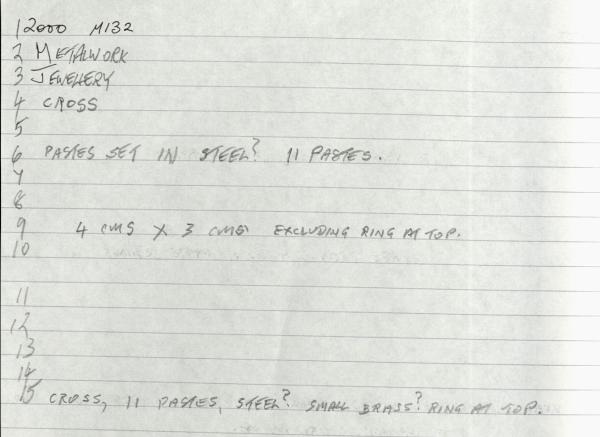 1 2000 M132
2 METALWORK
3 JEWELLERY
4 CROSS
5
6 PASTES SET IN STEEL? 11 PASTES.
7
8
9 4 CMS X 3 CMS EXCLUDING RING AT TOP.
10
11
12
13
14
15 CROSS, 11 PASTES, STEEL? SMALL BRASS? RING AT TOP.